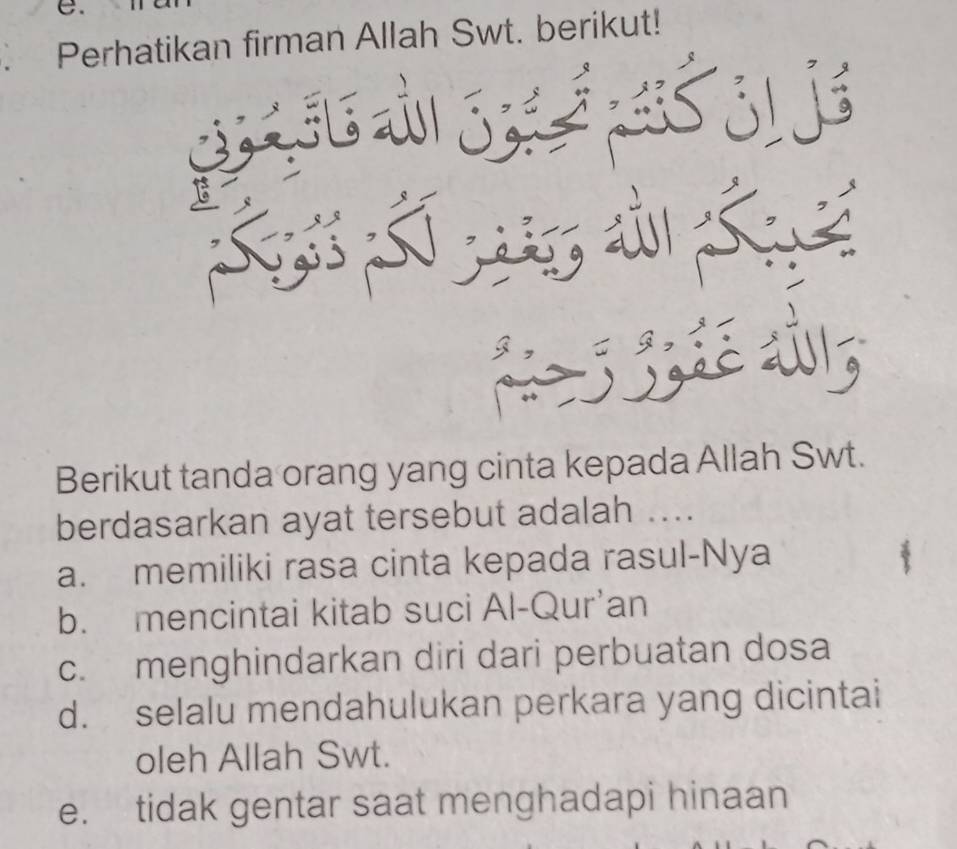 Perhatikan firman Allah Swt. berikut!
قُلْ اِنْ كُنْتُمْ تُحِبُّوْنَ اللّٰهَ فَاتَّبِعُوْنِيْ
يُحْبِبْكُمُ اللّٰهُ وَيَغْفِرْ لَكُمْ ذُنُوْبَكُمْ ۗ
وَاللّٰهُ غَفُوْرٌ رَّحِيْمٌ
Berikut tanda orang yang cinta kepada Allah Swt.
berdasarkan ayat tersebut adalah ....
a. memiliki rasa cinta kepada rasul-Nya
b. mencintai kitab suci Al-Qur'an
c. menghindarkan diri dari perbuatan dosa
d. selalu mendahulukan perkara yang dicintai
oleh Allah Swt.
e. tidak gentar saat menghadapi hinaan